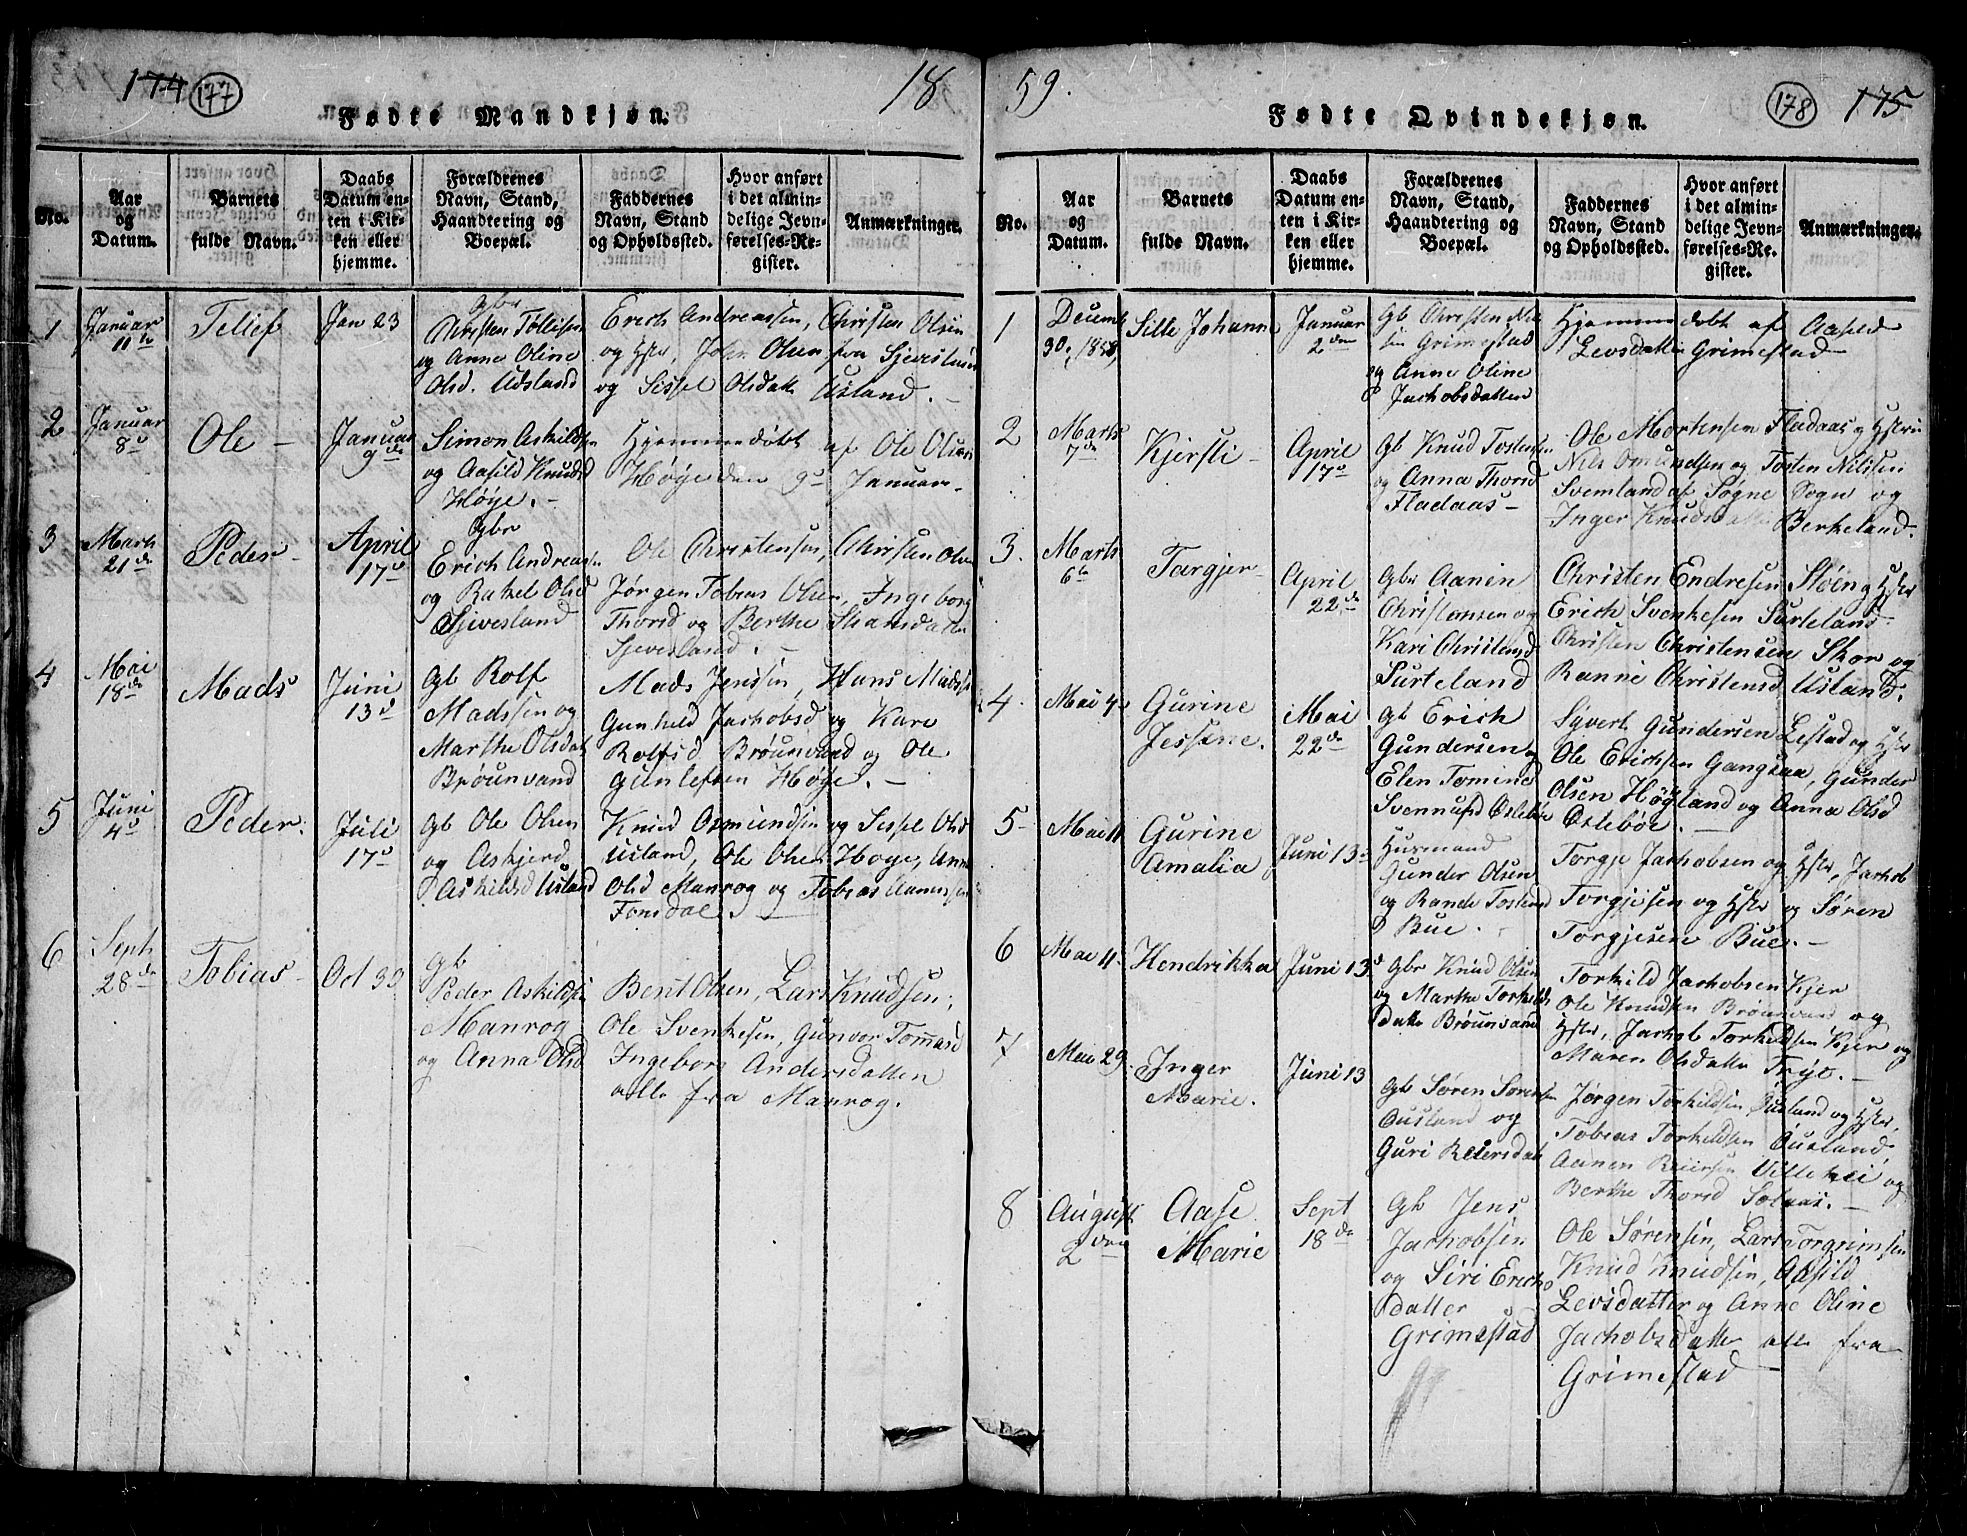 174 177 18
Fødte Mandkjøn.
No.
Aar og Datum.
Barnets fulde Navn.
Daabs Datum enten i Kirken eller hjemme.
Forældrenes Navn, Stand, Haandtering og Boepæl.
Faddernes Navn, Stand og Opholdssted.
Hvor anført i det almindelige Jevnførelses-Register.
Anmærkninger.
1 Januar 11te Tellef Jan 23
Gbr
Christen Tollisen
og Anne Oline
Olsd. Udsland
Erich Andreassen, Christen Olsen
og Hstr, Johs. Olsen fra Gjevesland
og Sissel Olsdatt Usland.
2 Januar 8d Ole Januar 9de
Simon Askilds
og Aasild Knudsd
Høye.
Hjemmedøbt af Ole Olsen
Høye den 9de Januar
3 Marts 21de Peder April 17d
Gbr
Erich Andreas
og Rakel Olsd
Gjevesland
Ole Christensen, Christen Olsen
Jørgen Tobias Olsen, Ingeborg
Thorsd og Berthe
Gjevesland.
4 Mai 18de Mads Juni 13d
Gb Rolf
Madssen og
Marthe Olsdat
Brøunvand
Mads Jenssen, Hans Madss
Gunheld Jachobsd og Kare
Rolfsd Brøunvand og Ole
Gunlefsen Høye.
5 Juni 4d Peder Juli 17d
Gb Ole Olsen
og Askjerd
Askildsd Usland
Knud Osmundsen og Sissel Olsd
Usland, Ole Olsen Høye, Anne
Olsd Manrog og Tobias Aanensen
Fonsdal
6 Septb 28de Tobias Oct 30
Gb
Peder Askildsen
Manrog
og Anna Olsd
Berit Olsen, Lars Knudsen,
Ole Svenkesen, Gunvor Tommasd
Ingeborg Andersdatten
alle fra Manrog.
59. 178 175
Fødte Qvindekjøn.
No.
Aar og Datum.
Barnets fulde Navn.
Daabs Datum enten i Kirken eller hjemme.
Forældrenes Navn, Stand, Haandtering og Boepæl.
Faddernes Navn, Stand og Opholdssted.
Hvor anført i det almindelige Jevnførelses-Register.
Anmærkninger.
1 Decemb 30, 1858, Sille Johanne Januar 2den
Gb Christen Nil
sen Grimestad
og Anne Oline
Jachobsdatten
Hjemme døbt af Aasild
Levsdatten Grimestad
2 Marts 7de Kjersti April 17d
Gb Knud Tostensen
og Anna Thorsd
Fladaas
Ole Mortensen Fladaas og Hstr
Nils Omundsen og Tosten Nilssen
Svemland af Søgne Sogn og
Inger Knudsdatten Berkeland.
3. Marts 6te Targjer April 22de
Gbr Aanen
Christensen og
Kari Christensd
Surteland
Christen Endresen Støen og Hstr
Erich Svenkesen Surteland
Christen Christensen Skor og
Ranne Christensd Usland.
4 Mai 4 Gurine Jessine. Mai 22de
Gb Erich
Gundersen og
Elen Tomine
Svennusd Oslebøe
Syvert Gundersen Lestad og Hstr
Ole Erichsen Gangsaa, Gunder
Olsen Høgland og Anna Olsd
Oslebøe.
5 Mai 11 Gurine Amalia Juni 13
Husmand
Gunder Olsen
og Rande Tostensd
Bue.
Torgje Jachobsen og Hstr, Jachob
Torgjesen og Hstr og Søren
Torgjesen Bue.
6 Mai 11 Hendrikka Juni 13d
Gbr Knud Olsen
og Marthe Torkilds
datte Brøunvand
Torkild Jachobsen Kjer
Ole Knudsen Brøunvand og
Hstr, Jachob Torkildsen Kjer og
Maren Olsdatte Trye.
7 Mai 29. Inger Marie. Juni 13
Gb Søren Sørensen
Ousland og
Guri Reiersdat
Jørgen Torkildsen Ousland og Hstr,
Tobias Torkildsen Ousland
Aanen Reiersen Villehei og
Berthe Thorsd Solaas.
8 August 2den Aase Marie Sept 18de
Gb Jens
Jachobsen
og Siri Erichs
datter
Grimestad
Ole Sørensen, Lars Torgrimsen
Knud Knudsen, Aasild
Levsdatter og Anne Oline
Jachobsdatte alle fra
Grimestad